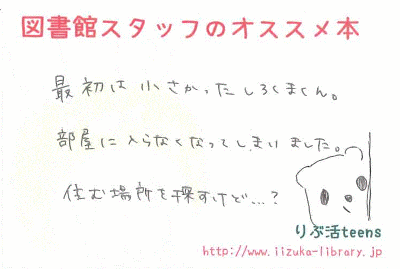 図書館スタッフのオススメ本
最初は小さかったしろくまくん。
部屋に入らなくなってしまいました。
住む場所を探すけど…?
りぶ活teens
http://www.iizuka-library.jp